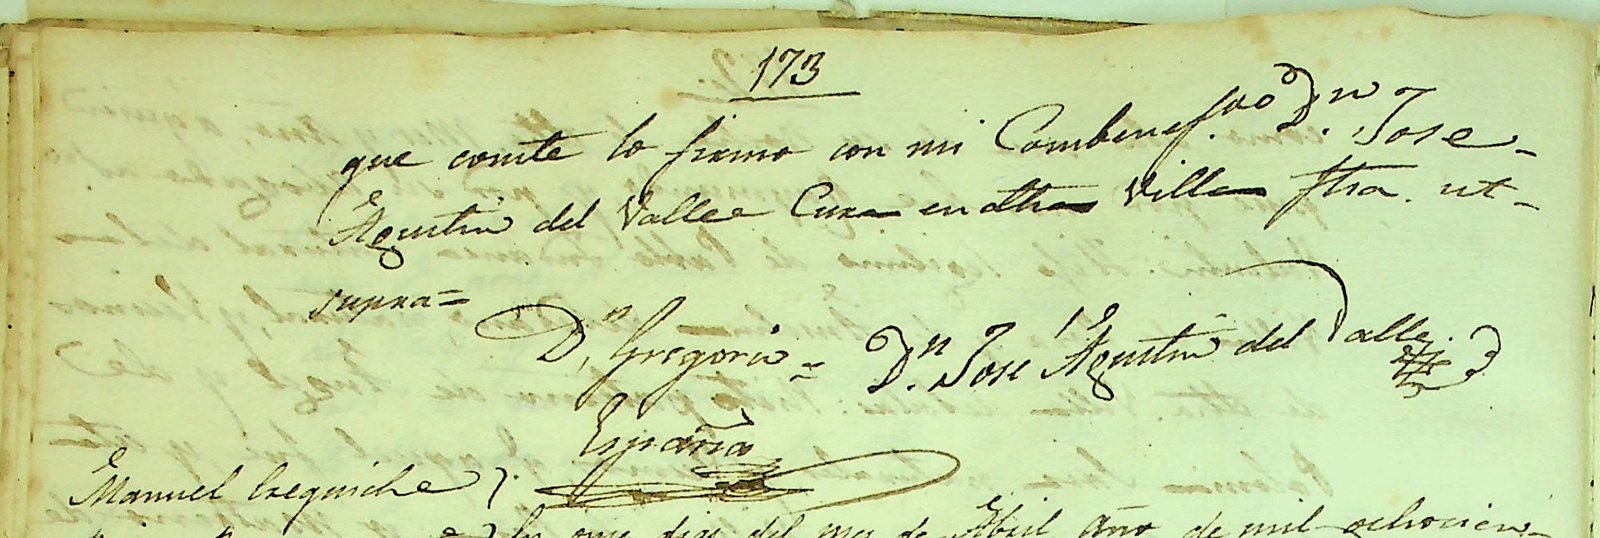 173
que conste lo firmo con mi Combenefdo Dn Jose
Agustin del Valle Cura en dha Villa fha. ut
supra=
Dn Gregorio = Dn Jose Agustin del Valle
España
Manuel
En once dias del mes de Abril año de mil ochocien